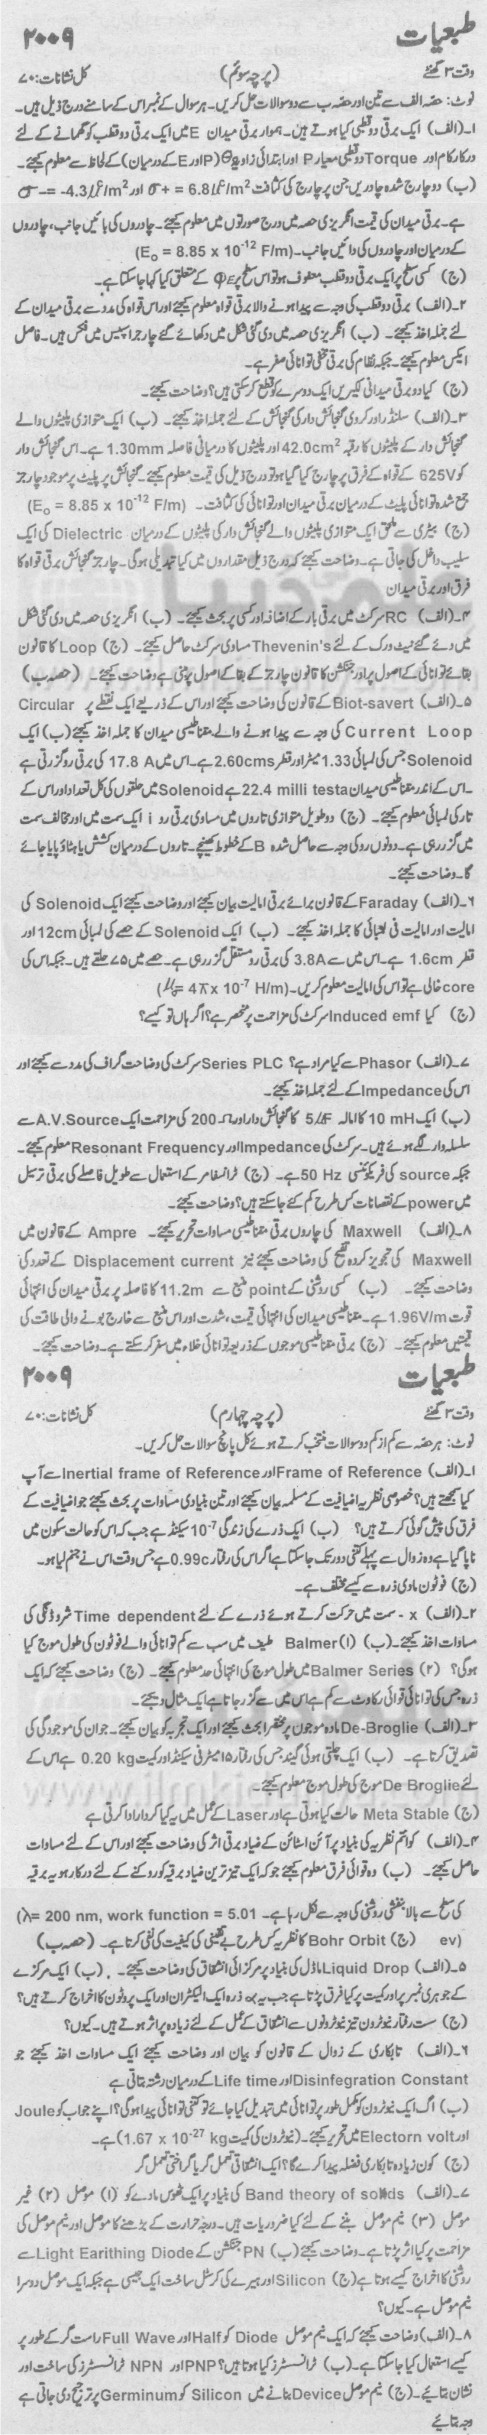 طبعیات ۲۰۰۹
وقت ۳ گھنٹے (پرچہ سوئم) کل نشانات: ۷۰
نوٹ: حصہ الف سے تین اور حصہ ب سے دو سوالات حل کریں۔ ہر سوال کے نمبر اس کے سامنے درج ذیل ہیں۔
۱۔(الف) ایک برقی دو قطبی کیا ہوتے ہیں۔ ہموار برقی میدان E میں ایک برقی دو قطب کو گھمانے کے لئے
درکار کام اور Torque دو قطبی معیار P اور ابتدائی زاویے θ(P اور E کے درمیان) کے لحاظ سے معلوم کیجئے۔
(ب) دو چارج شدہ چادریں جن پر چارج کی کثافت σ+ = 6.8μ/m² اور σ-= -4.3μ/m²
ہے۔ برقی میدان کی قیمت انگریزی حصہ میں درج صورتوں میں معلوم کیجئے۔ چادروں کی بائیں جانب، چادروں
کے درمیان اور چادروں کی دائیں جانب۔ (Eo = 8.85 x 10-12 F/m)
(ج) کسی سطح پر ایک برقی دو قطب ملفوف ہو تو اس سطح پر ΦE کے متعلق کیا کہا جا سکتا ہے۔
۲۔(الف) برقی دو قطب کی وجہ سے پیدا ہونے والا برقی قواہ معلوم کیجئے اور اس قواہ کی مدد سے برقی میدان کے
لئے جملہ اخذ کیجئے۔ (ب) انگریزی حصہ میں دی گئی شکل میں دکھائے گئے چارجز اسپیس میں فکس ہیں۔ فاصل
ایکس معلوم کیجئے۔ جبکہ نظام کی برقی مخفی توانائی صفر ہے۔
(ج) کیا دو برقی میدانی لکیریں ایک دوسرے کو قطع کر سکتی ہیں؟ وضاحت کیجئے۔
۳۔(الف) سلنڈر اور کروی گنجائش دار کی گنجائش کے لئے جملہ اخذ کیجئے۔ (ب) ایک متوازی پلیٹوں والے
گنجائش دار کے پلیٹوں کا رقبہ 42.0cm² اور پلیٹوں کا درمیانی فاصلہ 1.30mm ہے۔ اس گنجائش دار
کو 625V کے قواہ کے فرق پر چارج کیا گیا ہو تو درج ذیل کی قیمت معلوم کیجئے۔ گنجائش پر پلیٹ پر موجود چارجز
جمع شدہ توانائی پلیٹ کے درمیان برقی میدان اور توانائی کی کثافت۔ (Eo = 8.85 x 10-12 F/m)
(ج) بیٹری سے ملحق ایک متوازی پلیٹوں والے گنجائش دار کی پلیٹوں کے درمیان Dielectric کی ایک
سلیب داخل کی جاتی ہے۔ وضاحت کیجئے کہ درج ذیل مقداروں میں کیا تبدیلی ہوگی۔ چارجز گنجائش برقی قواہ کا
فرق اور برقی میدان
۴۔(الف) RC سرکٹ میں برقی بار کے اضافہ اور کمی پر بحث کیجئے۔ (ب) انگریزی حصہ میں دی گئی شکل
میں دیے گئے نیٹ ورک کے لئے Thevenin's مساوی سرکٹ حاصل کیجئے۔ (ج) Loop کا قانون
بقائے توانائی کے اصول پر اور جنکشن کا قانون چارجز کے بقا کے اصول پر مبنی ہے وضاحت کیجئے۔ (حصہ ب)
۵۔(الف) Biot-savert کے قانون کی وضاحت کیجئے اور اس کے ذریعے ایک نقطے پر Circular
Current Loop کی وجہ سے پیدا ہونے والے مقناطیسی میدان کا جملہ اخذ کیجئے (ب) ایک
Solenoid جس کی لمبائی 1.33 میٹر اور قطر 2.60cms ہے۔ اس میں 17.8 A کی برقی رو گزرتی ہے
۔اس کے اندر مقناطیسی میدان 22.4 milli testa ہے Solenoid میں حلقوں کی کل تعداد اور اس کے
تار کی لمبائی معلوم کیجئے۔ (ج) دو طویل متوازی تاروں میں مساوی برقی رو i ایک سمت میں اور مخالف سمت
میں گزر رہی ہے۔ دونوں رو کی وجہ سے حاصل شدہ B کے خطوط کھینچیے۔ تاروں کے درمیان کشش یا ہٹاؤ پایا جائے
گا۔ وضاحت کیجئے۔
۶۔(الف) Faraday کے قانون برائے برقی امالیت بیان کیجئے اور وضاحت کیجئے ایک Solenoid کی
امالیت اور امالیت فی لمبائی کا جملہ اخذ کیجئے۔ (ب) ایک Solenoid کے حصے کی لمبائی 12cm اور
قطر 1.6cm ہے۔ اس میں سے 3.8A کی برقی رو مستقل گزر رہی ہے۔ حصے میں ۷۵ حلقے ہیں۔ جبکہ اس کی
core خالی ہے تو اس کی امالیت معلوم کریں۔ (μ₀= 4π x 10-7 H/m)
(ج) کیا Induced emf سرکٹ کی مزاحمت پر منحصر ہے؟ اگر ہاں تو کیسے؟
۷۔(الف) Phasor سے کیا مراد ہے؟ Series PLC سرکٹ کی وضاحت گراف کی مدد سے کیجئے اور
اس کی Impedance کے لئے جملہ اخذ کیجئے۔
(ب) ایک 10 mH کا امالہ 5μF کا گنجائش دار اور 200Ω کی مزاحمت ایک A.V.Source سے
سلسلہ وار لگے ہوئے ہیں۔ سرکٹ کی Impedance اور Resonant Frequency معلوم کیجئے۔
جبکہ source کی فریکوئنسی 50 Hz ہے۔ (ج) ٹرانسفارمر کے استعمال سے طویل فاصلے کی برقی ترسیل
میں power کے نقصانات کس طرح کم کئے جا سکتے ہیں؟ وضاحت کیجئے۔
۸۔(الف) Maxwell کی چاروں برقی مقناطیسی مساوات تحریر کیجئے۔ Ampre کے قانون میں
Maxwell کی تجویز کردہ تصحیح کی وضاحت کیجئے نیز Displacement current کے تعدد کی
وضاحت کیجئے۔ (ب) کسی روشنی کے point منبع سے 11.2m کا فاصلہ پر برقی میدان کی انتہائی
قوت 1.96V/m ہے۔ مقناطیسی میدان کی انتہائی قیمت، شدت اور اس منبع سے خارج ہونے والی طاقت کی
قیمتیں معلوم کیجئے۔ (ج) برقی مقناطیسی موجوں کے ذریعہ توانائی خلاء میں سفر کر سکتے ہے۔ وضاحت کیجئے۔
طبعیات ۲۰۰۹
وقت ۳ گھنٹے (پرچہ چہارم) کل نشانات: ۷۰
نوٹ: ہر حصہ سے کم از کم دو سوالات منتخب کرتے ہوئے کل پانچ سوالات حل کریں۔
۱۔(الف) Frame of Reference اور Inertial frame of Reference سے آپ
کیا سمجھتے ہیں؟ خصوصی نظریہ اضافیت کے مسلمہ بیان کیجئے اور تین بنیادی مساوات پر بحث کیجئے جو اضافیت کے
فرق کی پیش گوئی کرتے ہیں؟ (ب) ایک ذرے کی زندگی 10-7 سیکنڈ ہے جب کہ اس کو حالت سکون میں
ناپا گیا ہے وہ زوال سے پہلے کتنی دور تک جا سکتا ہے اگر اس کی رفتار 0.99c ہے جس وقت اس نے جنم لیا ہو۔
(ج) فوٹون مادی ذرہ سے کیسے مختلف ہے۔
۲۔(الف) x - سمت میں حرکت کرتے ہوئے ذرے کے لئے Time dependent شروڈنگر کی
مساوات اخذ کیجئے۔ (ب) (۱) Balmer طیف میں سب سے کم توانائی والے فوٹون کی طول موج کیا
ہوگی؟ (۲) Balmer Series میں طول موج کی انتہائی حد معلوم کیجئے۔ (ج) وضاحت کیجئے کہ ایک
ذرہ جس کی توانائی قوائی رکاوٹ سے کم ہے اس میں سے گزر جاتا ہے ایک مثال دیجئے۔
۳۔(الف) De-Broglie مادہ موجوں پر مختصراً بحث کیجئے اور ایک تجربہ کو بیان کیجئے۔ جو ان کی موجودگی کی
تصدیق کرتا ہے۔ (ب) ایک چلتی ہوئی گیند جس کی رفتار ۱۵ میٹر فی سیکنڈ اور کمیت 0.20 kg ہے اس کے
لئے De Broglie موج کی طول موج معلوم کیجئے۔
(ج) Meta Stable حالت کیا ہوتی ہے اور Laser کے عمل میں یہ کیا کردار ادا کرتی ہے
۴۔(الف) کوانٹم نظریہ کی بنیاد پر آئن اسٹائن کے ضیاء برقی اثر کی وضاحت کیجئے اور اس کے لئے مساوات
حاصل کیجئے۔ (ب) وہ قوائی فرق معلوم کیجئے جو کہ ایک تیز ترین ضیاء برقیہ کو روکنے کے لئے درکار ہو یہ برقیہ
کی سطح سے بالا بنفشی روشنی کی وجہ سے نکل رہا ہے۔ (λ= 200 nm, work function = 5.01
ev) (ج) Bohr Orbit کا نظریہ کس طرح بے یقینی کی کیفیت کی نفی کرتا ہے۔ (حصہ ب)
۵۔(الف) Liquid Drop ماڈل کی بنیاد پر مرکزائی انشقاق کی وضاحت کیجئے۔ (ب) ایک مرکزے
کے جوہری نمبر پر اور کمیت پر کیا فرق پڑتا ہے جب یہ α ذرہ ایک الیکٹران اور ایک پروٹون کا اخراج کرتے ہیں؟
(ج) ست رفتار نیوٹرون تیز نیوٹرونوں سے انشقاق کے عمل کے لئے زیادہ پر اثر ہوتے ہیں۔ کیوں؟
۶۔(الف) تابکاری کے زوال کے قانون کو بیان اور وضاحت کیجئے ایک مساوات اخذ کیجئے جو
Disinfegration Constant اور Life time کے درمیان رشتہ بتاتی ہے
(ب) اگر ایک نیوٹرون کو مکمل طور پر توانائی میں تبدیل کیا جائے تو کتنی توانائی پیدا ہوگی؟ اپنے جواب کو Joule
اور Electorn volt میں تحریر کیجئے۔ (نیوٹرون کی کمیت 1.67 x 10-27 kg) ہے۔
(ج) کون زیادہ تابکاری فضلہ پیدا کرے گا؟ ایک انشقاقی تعمل گر یا گداختی تعمل گر
۷۔(الف) Band theory of solids کی بنیاد پر ایک ٹھوس مادے کو (۱) موصل (۲) غیر
موصل (۳) نیم موصل بننے کے لئے کیا ضروریات ہیں۔ درجہ حرارت کے بڑھنے کا موصل اور نیم موصل کی
مزاحمت پر کیا اثر پڑتا ہے۔ وضاحت کیجئے (ب) PN جنکشن کے Light Earithing Diode سے
روشنی کا اخراج کیسے ہوتا ہے (ج) Silicon اور ہیرے کی کرسٹل ساخت ایک جیسی ہے جبکہ ایک موصل دوسرا
نیم موصل ہے۔ کیوں؟
۸۔(الف) وضاحت کیجئے کہ ایک نیم موصل Diode کو Half اور Full Wave راست گر کے طور پر
کیسے استعمال کیا جا سکتا ہے۔ (ب) ٹرانسسٹرز کیا ہوتا ہیں؟ PNP اور NPN ٹرانسسٹرز کی ساخت اور
نشان بتائیے۔ (ج) نیم موصل Device بنانے میں Silicon کو Germinum پر ترجیح دی جاتی ہے
وجہ بتائیے